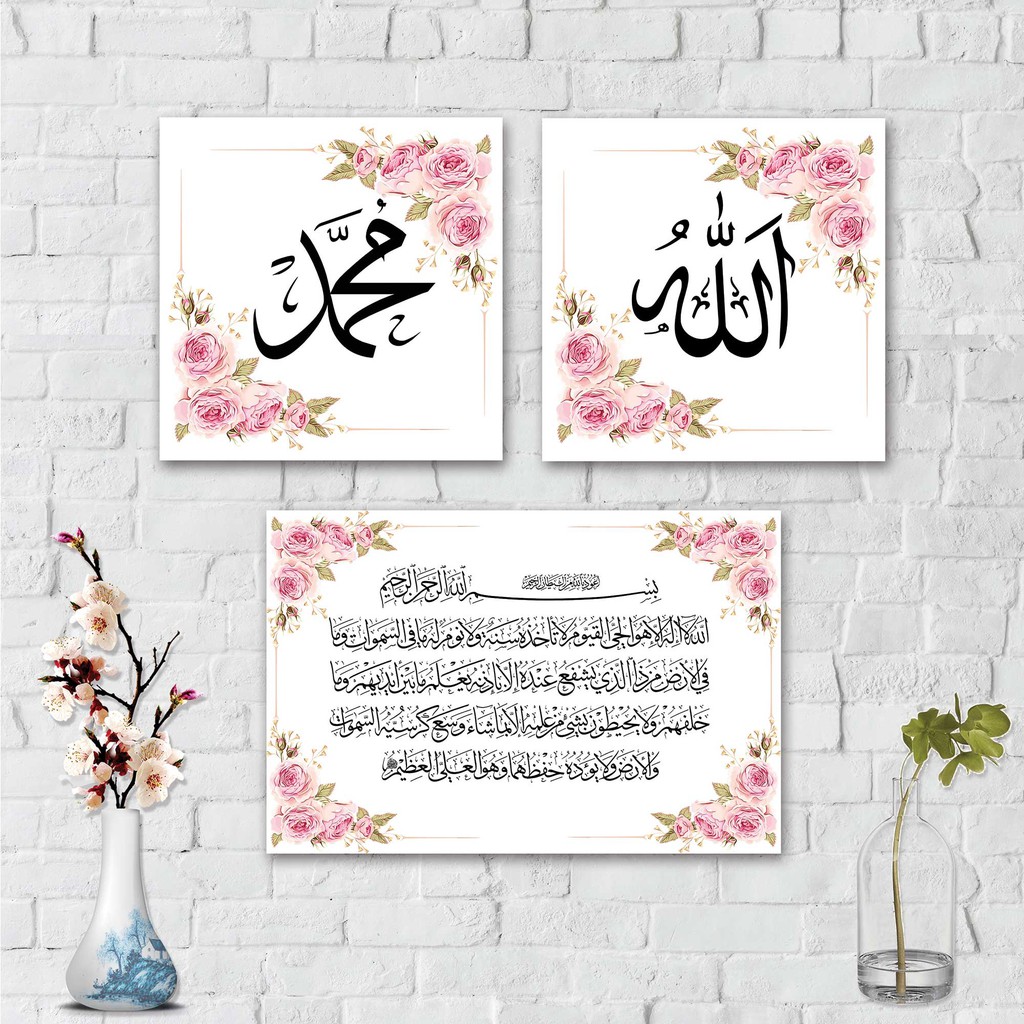 اَللّٰهُ
مُحَمَّد
أعوذ بالله من الشيطان الرجيم
بِسْمِ اللَّهِ الرَّحْمَٰنِ الرَّحِيمِ
الله لا اله الا هو الحي القيوم لا تاخذه سنة ولا نوم له ما في السموات وما
في الارض من ذا الذي يشفع عنده الا باذنه يعلم ما بين ايديهم وما
خلفهم ولا يحيطون بشيء من علمه الا بما شاء وسع كرسيه السموات
والارض ولا يوده حفظهما وهو العلي العظيم